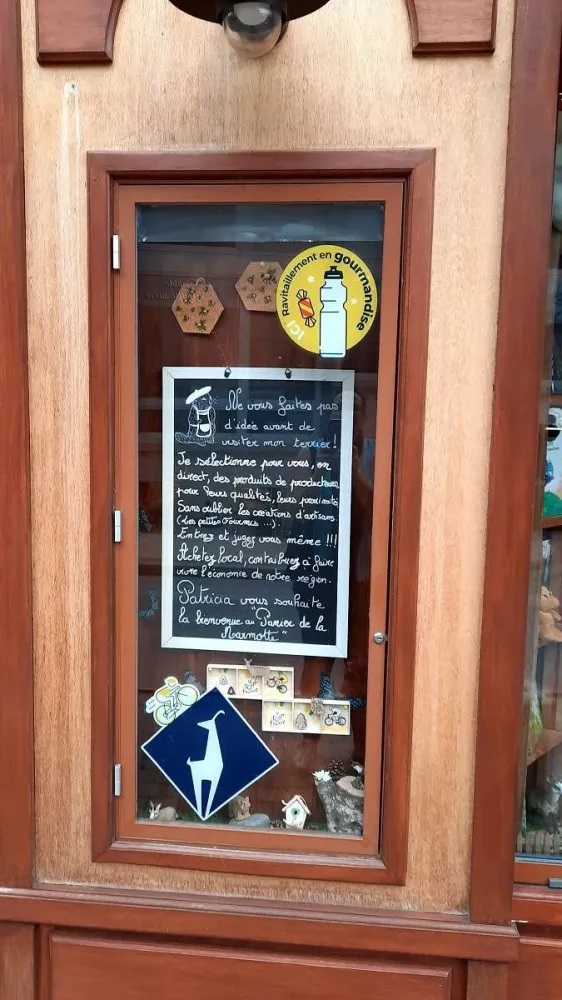 Ravitaillement en gourmandise
ICI
Ne vous faites pas
d'idée avant de
visiter mon terrier!
Je sélectionne pour vous, en
direct, des produits de producteurs
pour leurs qualités, leurs proximité
Sans oublier les créations d'artisans.
(Les petites Gourmes ....).
Entrez et jugez vous même !!!
Achetez local, contribuez à faire
vivre l'économie de notre région.
Patricia vous souhaite
la bienvenue au "Panier de la
Marmotte"